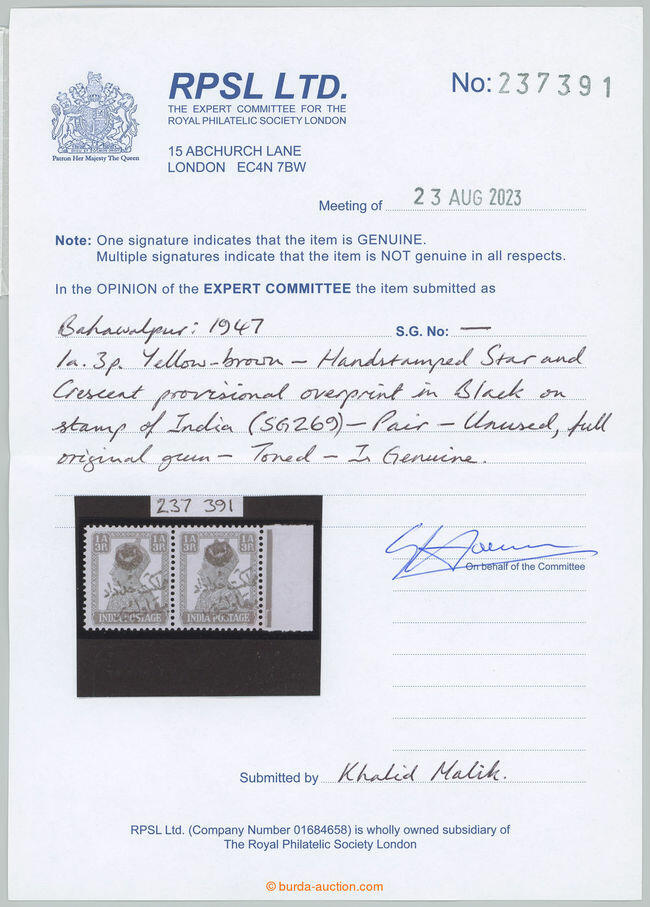 RPSL LTD.
THE EXPERT COMMITTEE FOR THE
ROYAL PHILATELIC SOCIETY LONDON
No: 237391
Patron Her Majesty The Queen
15 ABCHURCH LANE
LONDON EC4N 7BW
Meeting of 23 AUG 2023
Note: One signature indicates that the item is GENUINE.
Multiple signatures indicate that the item is NOT genuine in all respects.
In the OPINION of the EXPERT COMMITTEE the item submitted as
Bahawalpur: 1947 S.G. No: —
1a. 3p. Yellow-brown — Handstamped Star and
Crescent provisional overprint in Black on
stamp of India (SG269) — Pair — Unused, full
original gum — Toned — Is Genuine.
237 391
1A 3P 1A 3P 1A 3P 1A 3P
INDIA POSTAGE INDIA POSTAGE
On behalf of the Committee
Submitted by Khalid Malik.
RPSL Ltd. (Company Number 01684658) is wholly owned subsidiary of
The Royal Philatelic Society London
© burda-auction.com